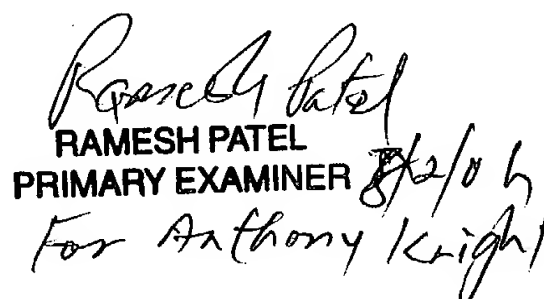 Ramesh Patel
RAMESH PATEL
PRIMARY EXAMINER 8/2/06
For Anthony Knight